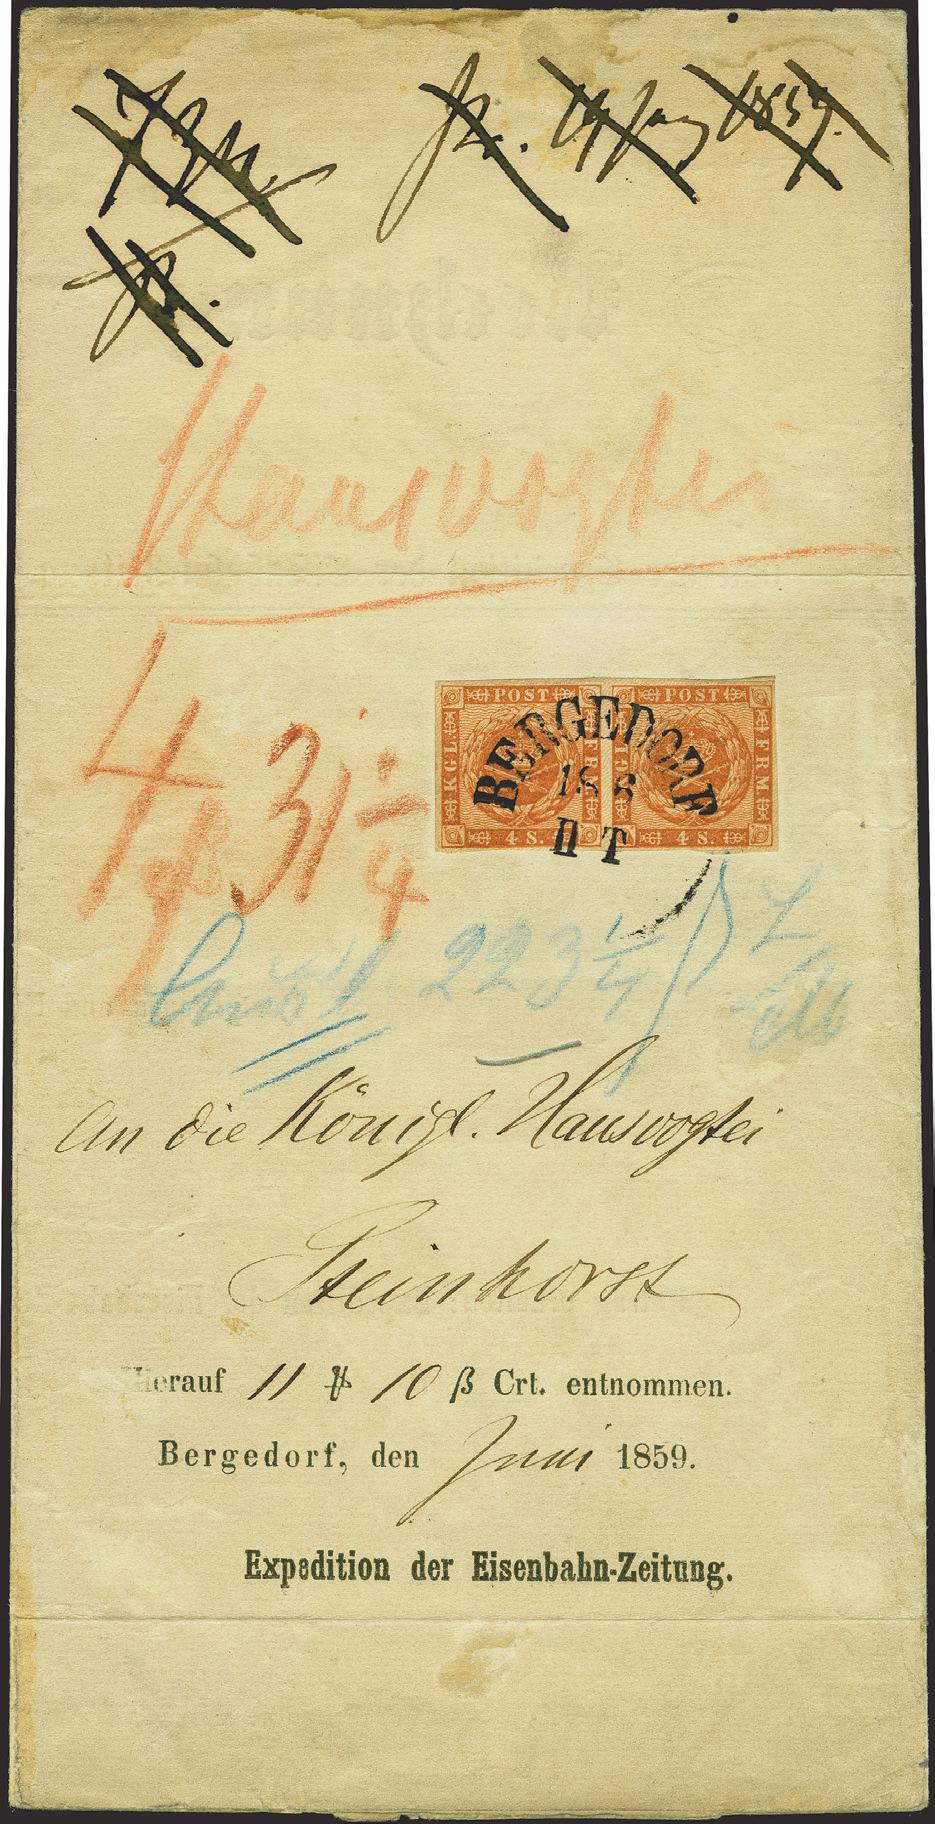 1859.
Hausvogtei
4 ß 31 1/4
POST POST
KGL FRM KGL FRM
4 S. 4 S.
BERGEDORF
18 6
II T
223 1/4
An die Königl. Hausvogtei
Steinhorst
Hierauf 11 10 ß Crt. entnommen.
Bergedorf, den Juni 1859.
Expedition der Eisenbahn-Zeitung.